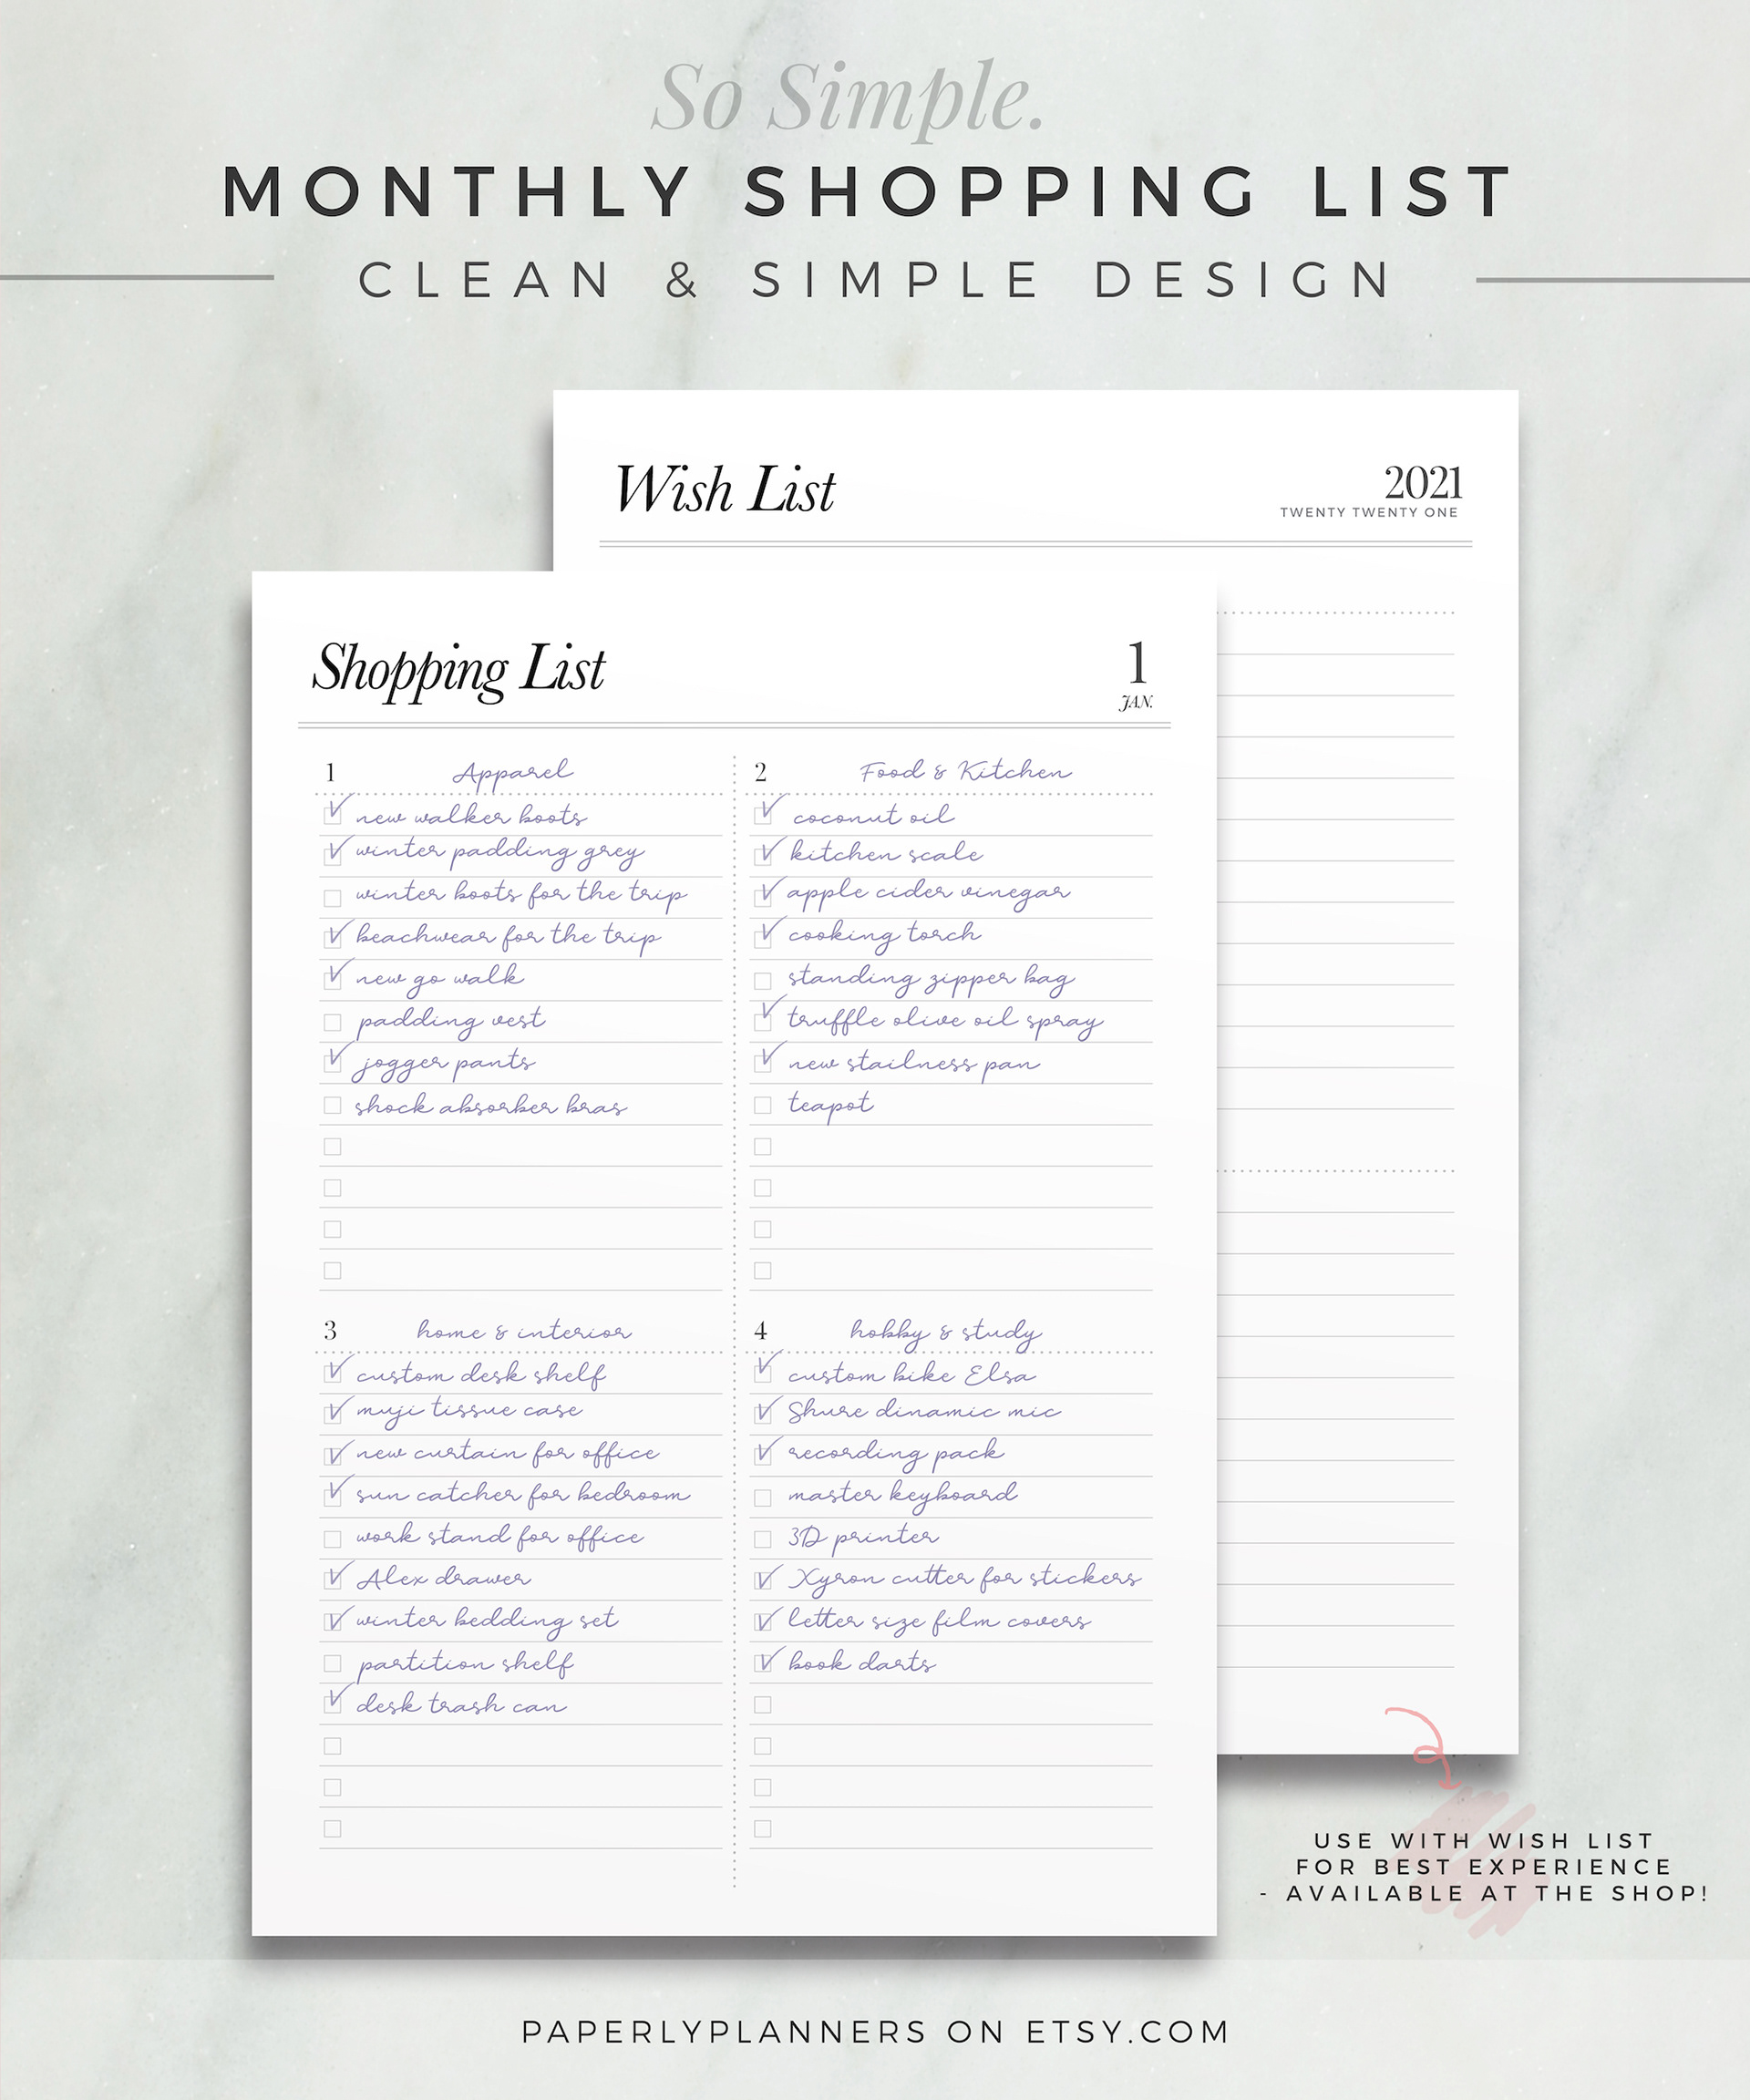 So Simple.
MONTHLY SHOPPING LIST
CLEAN & SIMPLE DESIGN
Wish List
2021
TWENTY TWENTY ONE
Shopping List
1
JAN.
1 Apparel
new walker boots
winter padding grey
winter boots for the trip
beachwear for the trip
new go walk
padding vest
jogger pants
shock absorber bras
2 Food & Kitchen
coconut oil
kitchen scale
apple cider vinegar
cooking torch
standing zipper bag
truffle olive oil spray
new stailness pan
teapot
3 home & interior
custom desk shelf
muji tissue case
new curtain for office
sun catcher for bedroom
work stand for office
Alex drawer
winter bedding set
partition shelf
desk trash can
4 hobby & study
custom bike Elsa
Shure dinamic mic
recording pack
master keyboard
3D printer
Xyron cutter for stickers
letter size film covers
book darts
USE WITH WISH LIST
FOR BEST EXPERIENCE
- AVAILABLE AT THE SHOP!
PAPERLYPLANNERS ON ETSY.COM